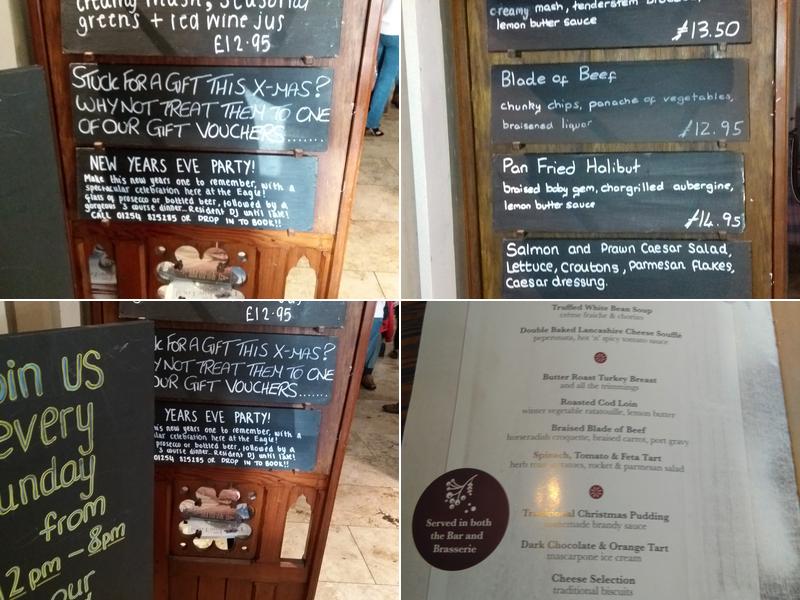 creamy mash, seasonal
greens + red wine jus
£12.95
STUCK FOR A GIFT THIS X-MAS?
WHY NOT TREAT THEM TO ONE
OF OUR GIFT VOUCHERS.......
NEW YEARS EVE PARTY!
Make this new years one to remember, with a
spectacular celebration here at the Eagle!
Glass of prosecco or bottled beer, followed by a
gorgeous 3 course dinner... Resident DJ until late!
CALL 01254 825285 OR DROP IN TO BOOK!!
creamy mash, tenderstem
lemon butter sauce
£13.50
Blade of Beef
chunky chips, panache of vegetables,
braisened liquor
£12.95
Pan Fried Halibut
braised baby gem, chorgrilled aubergine,
lemon butter sauce
£14.95
Salmon and Prawn Caesar Salad,
Lettuce, Croutons, Parmesan flakes,
Caesar dressing.
£12.95
K FOR A GIFT THIS X-MAS?
Y NOT TREAT THEM TO ONE
OUR GIFT VOUCHERS.......
YEARS EVE PARTY!
this new years one to remember, with a
ular celebration here at the Eagle!
prosecco or bottled beer, followed by a
3 course dinner... Resident DJ until late!
01254 825285 OR DROP IN TO BOOK!!
oin us
every
unday
from
2pm - 8pm
our
Truffled White Bean Soup
crème fraiche & chorizo
Double Baked Lancashire Cheese Soufflé
peperonata, hot 'n' spicy tomato sauce
Butter Roast Turkey Breast
and all the trimmings
Roasted Cod Loin
winter vegetable ratatouille, lemon butter
Braised Blade of Beef
horseradish croquette, braised carrots, port gravy
Spinach, Tomato & Feta Tart
herb potatoes, rocket & parmesan salad
Traditional Christmas Pudding
homemade brandy sauce
Dark Chocolate & Orange Tart
mascarpone ice cream
Cheese Selection
traditional biscuits
Served in both
the Bar and
Brasserie